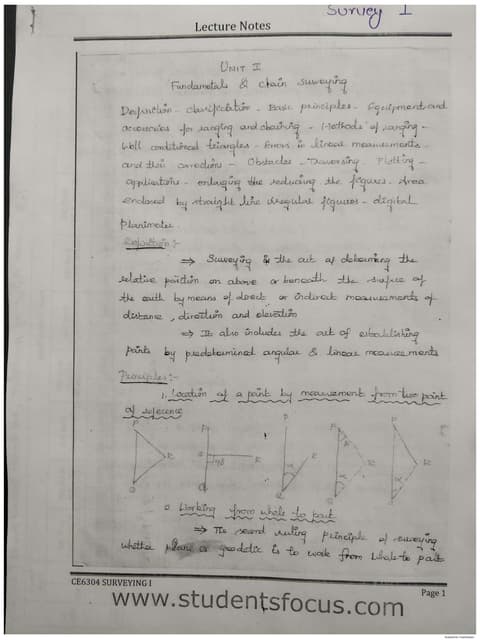 Survey I
Lecture Notes
UNIT I
Fundametals & chain suweying
Definition - classification - Basic principles - Equipment and
accessories for ranging and chaining - Methods of ranging -
Well conditioned triangles - Errors in linear measurements
and their corrections - Obstacles - Traversing - Plotting -
applications - enlarging the reducing the figures - Area
enclosed by straight line irregular figures - digital
Planimeter.
Definition :-
⇒ Surveying is the art of determining the
relative position on above or beneath the surface of
the earth by means of direct or indirect measurements of
distance, direction and elevation
⇒ It also includes the art of establishing
points by predetermined angular & linear measurements
Principles :-
1. Location of a point by measurement from two point
of reference
P P P P P
R R R R R
90
Q Q Q Q Q
Working from whole to part
⇒ The second ruling principle of surveying
whether plane or geodetic is to work from whole to part
CE6304 SURVEYING I
Page 1
www.studentsfocus.com